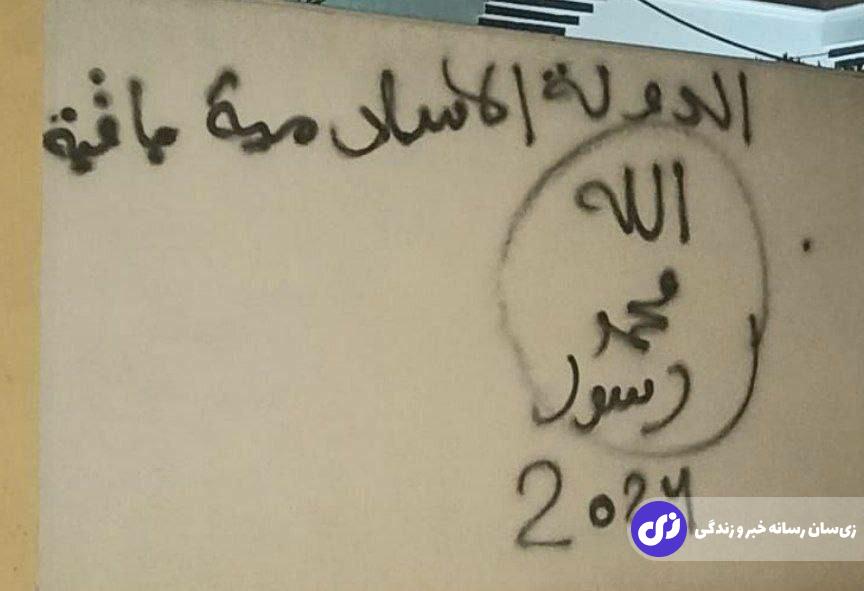 الدولة الاسلامية باقية
الله
محمد
رسول
2024
زی‌سان رسانه خبر و زندگی